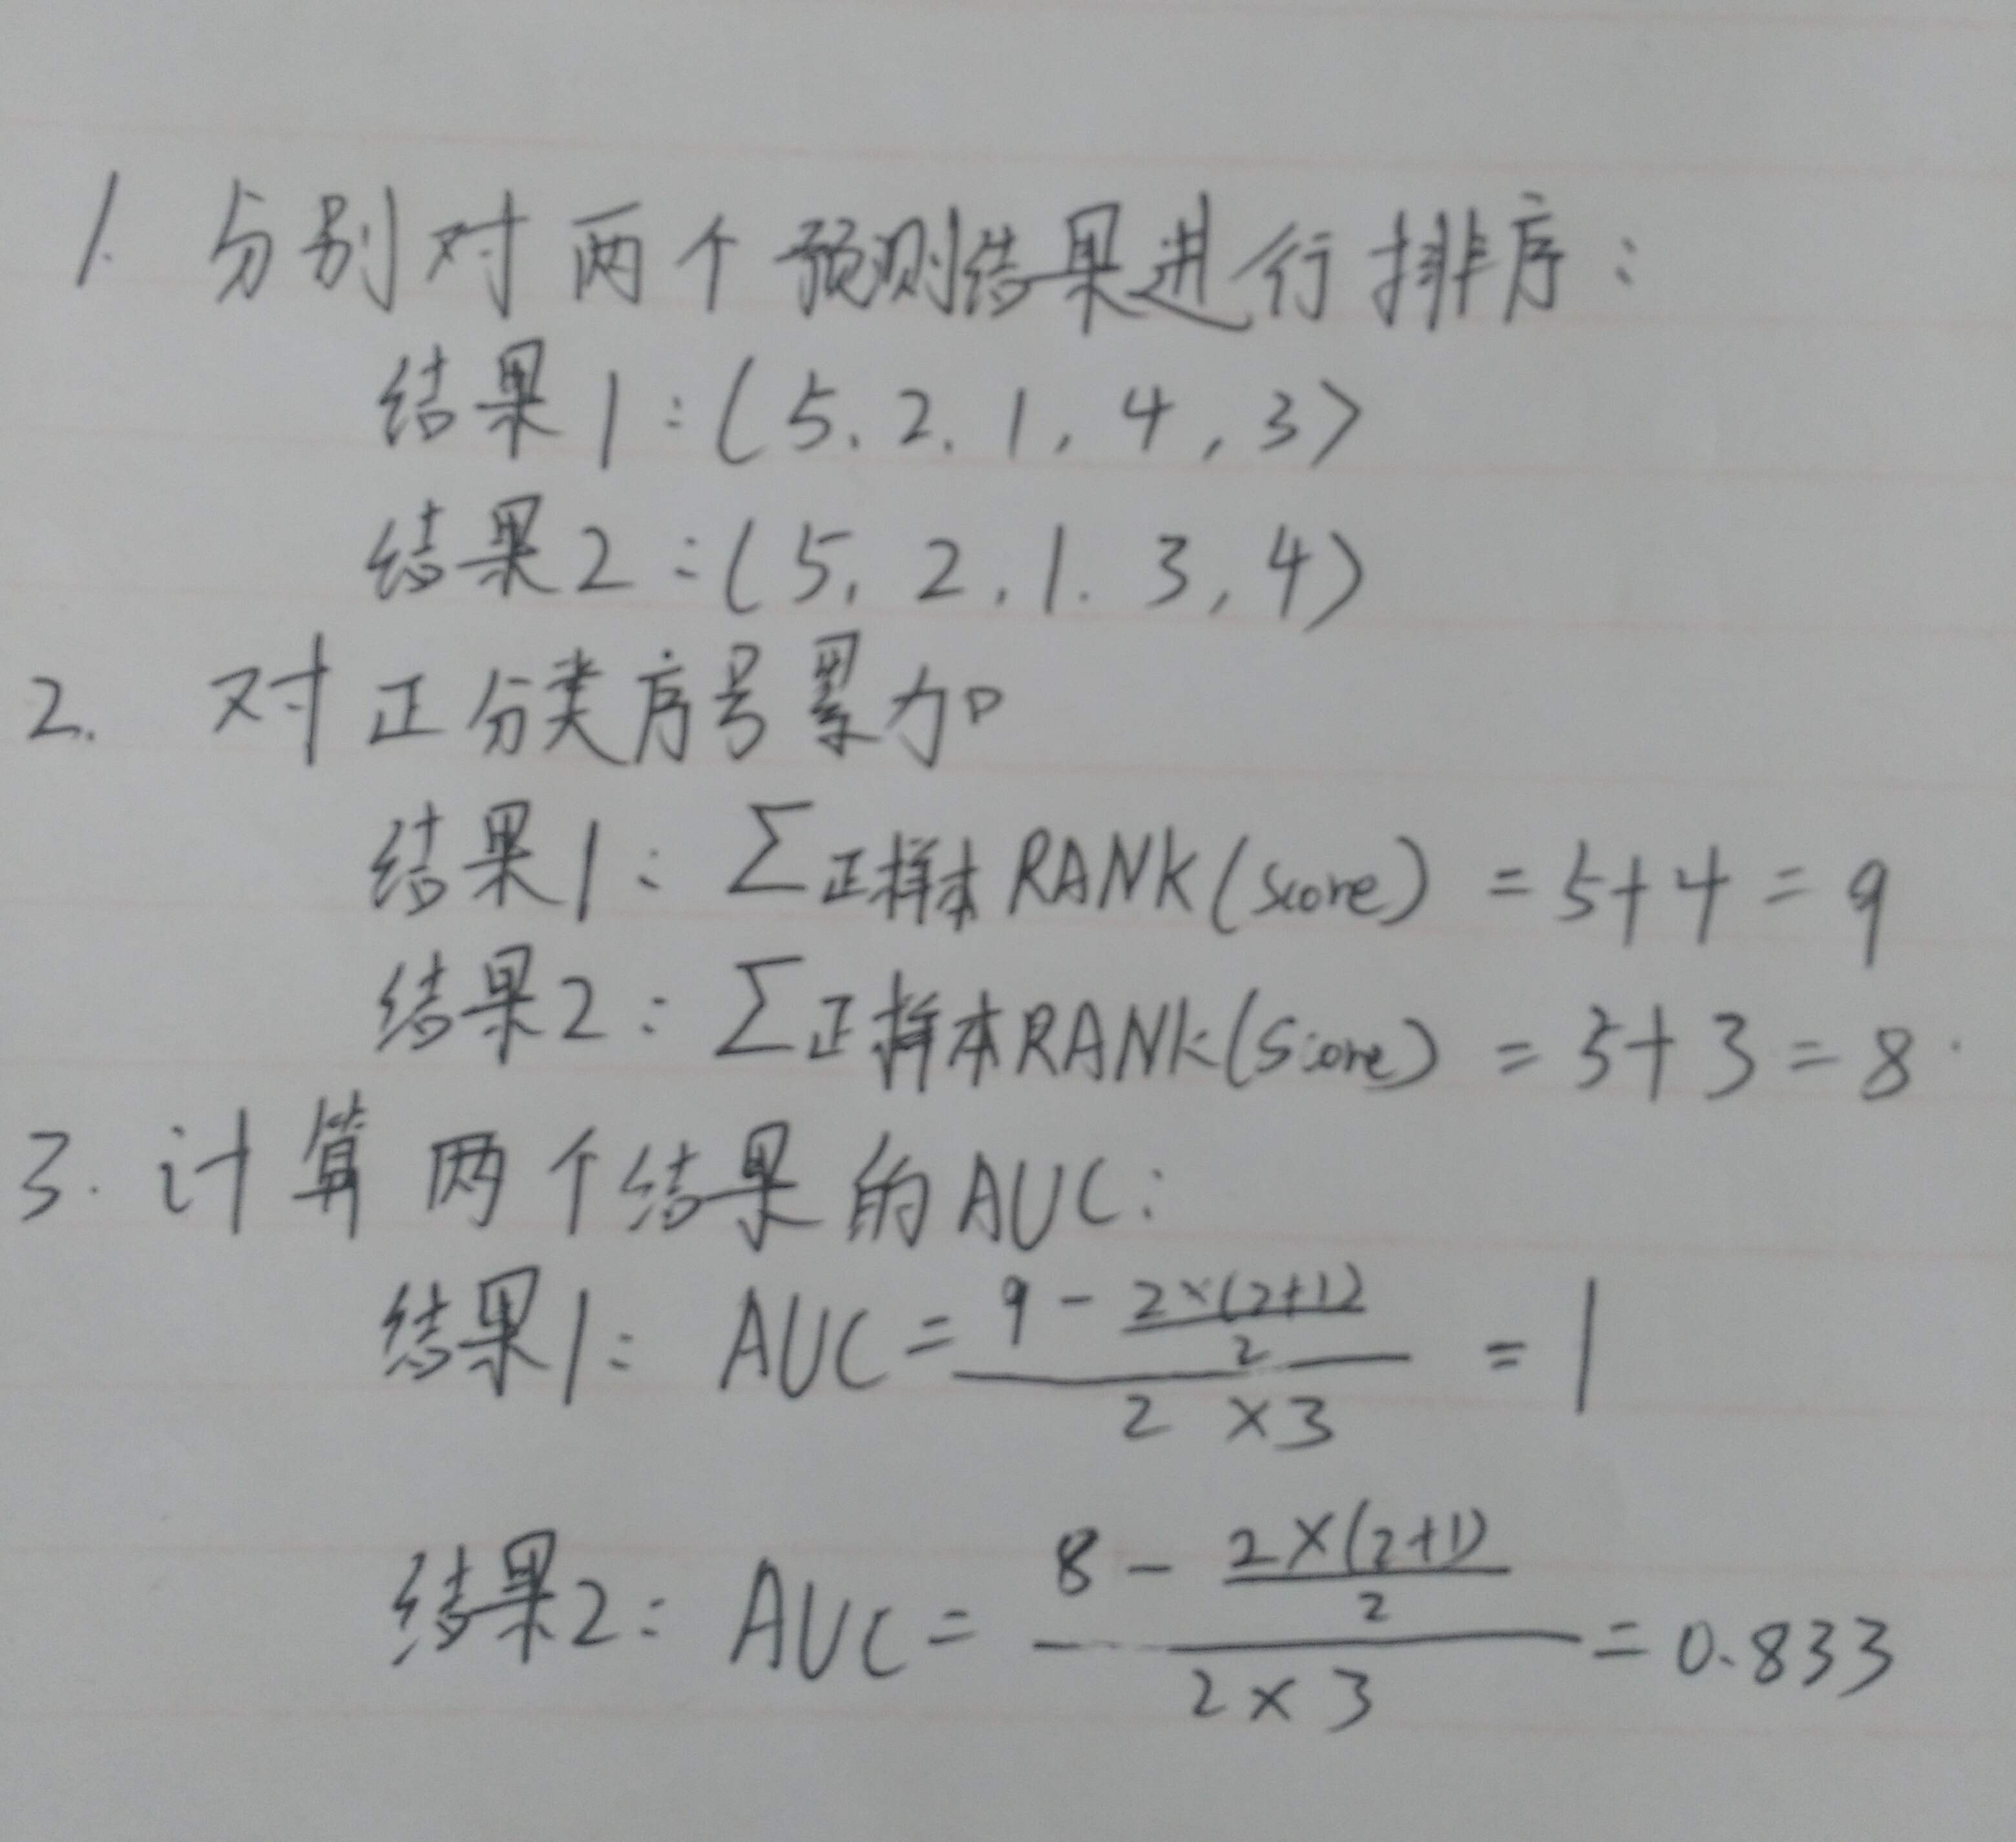 1. 分别对两个预测结果进行排序:
结果1:(5, 2, 1, 4, 3)
结果2:(5, 2, 1, 3, 4)
2. 对正分类序号累加
结果1: ∑正样本RANK(score) = 5+4 = 9
结果2: ∑正样本RANK(score) = 5+3 = 8
3. 计算两个结果的AUC:
结果1: AUC = (9 - (2×(2+1))/2) / (2×3) = 1
结果2: AUC = (8 - (2×(2+1))/2) / (2×3) = 0.833